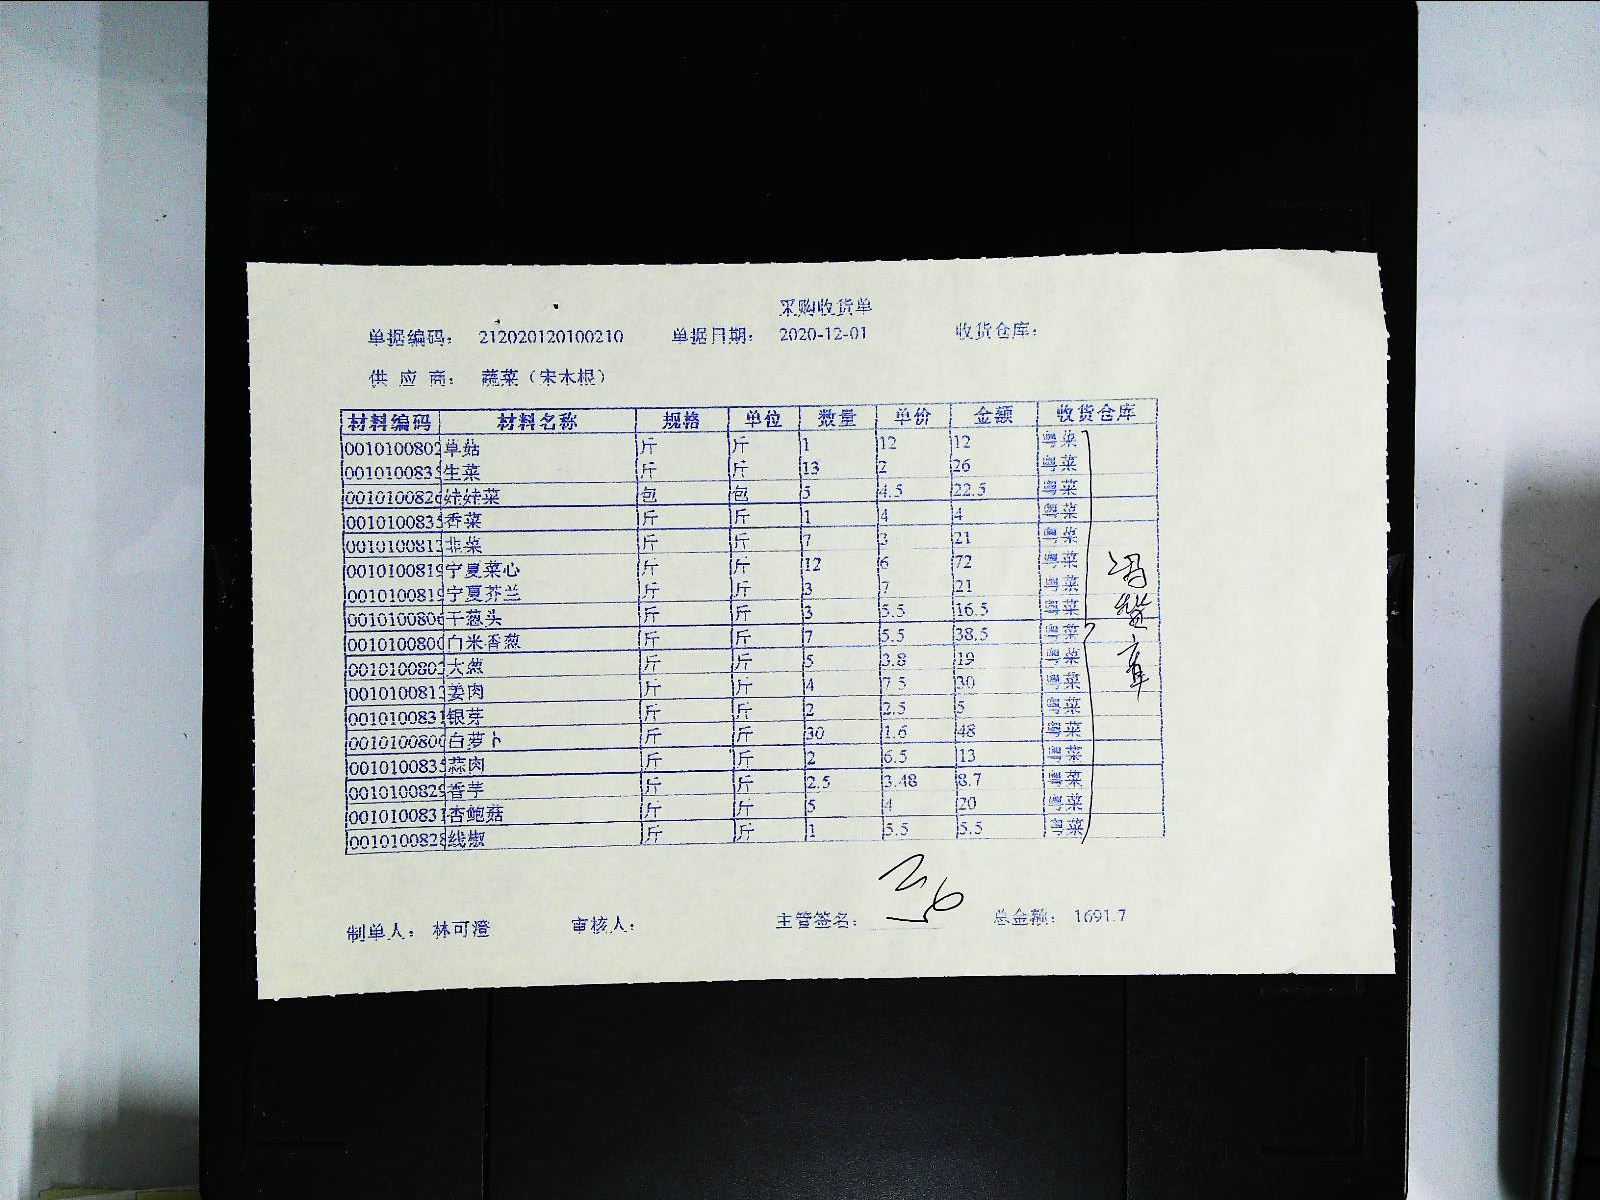 采购收货单
单据编码： 212020120100210 单据日期： 2020-12-01 收货仓库：
供 应 商： 蔬菜（宋木根）
材料编码 材料名称 规格 单位 数量 单价 金额 收货仓库
0010100802 草菇 斤 斤 1 12 12 粤菜
001010083 生菜 斤 斤 13 2 26 粤菜
001010082 娃娃菜 包 包 5 4.5 22.5 粤菜
001010083 香菜 斤 斤 1 4 4 粤菜
001010081 韭菜 斤 斤 7 3 21 粤菜
001010081 宁夏菜心 斤 斤 12 6 72 粤菜
001010081 宁夏芥兰 斤 斤 3 7 21 粤菜
001010080 干葱头 斤 斤 3 5.5 16.5 粤菜
001010080 白米香葱 斤 斤 7 5.5 38.5 粤菜
001010080 大葱 斤 斤 5 3.8 19 粤菜
001010081 姜肉 斤 斤 4 7.5 30 粤菜
001010083 银芽 斤 斤 2 2.5 5 粤菜
001010080 白萝卜 斤 斤 30 1.6 48 粤菜
001010083 蒜肉 斤 斤 2 6.5 13 粤菜
001010082 香芋 斤 斤 2.5 3.48 8.7 粤菜
001010083 杏鲍菇 斤 斤 5 4 20 粤菜
001010082 线椒 斤 斤 1 5.5 5.5 粤菜
制单人： 林可澄 审核人： 主管签名： 总金额： 1691.7